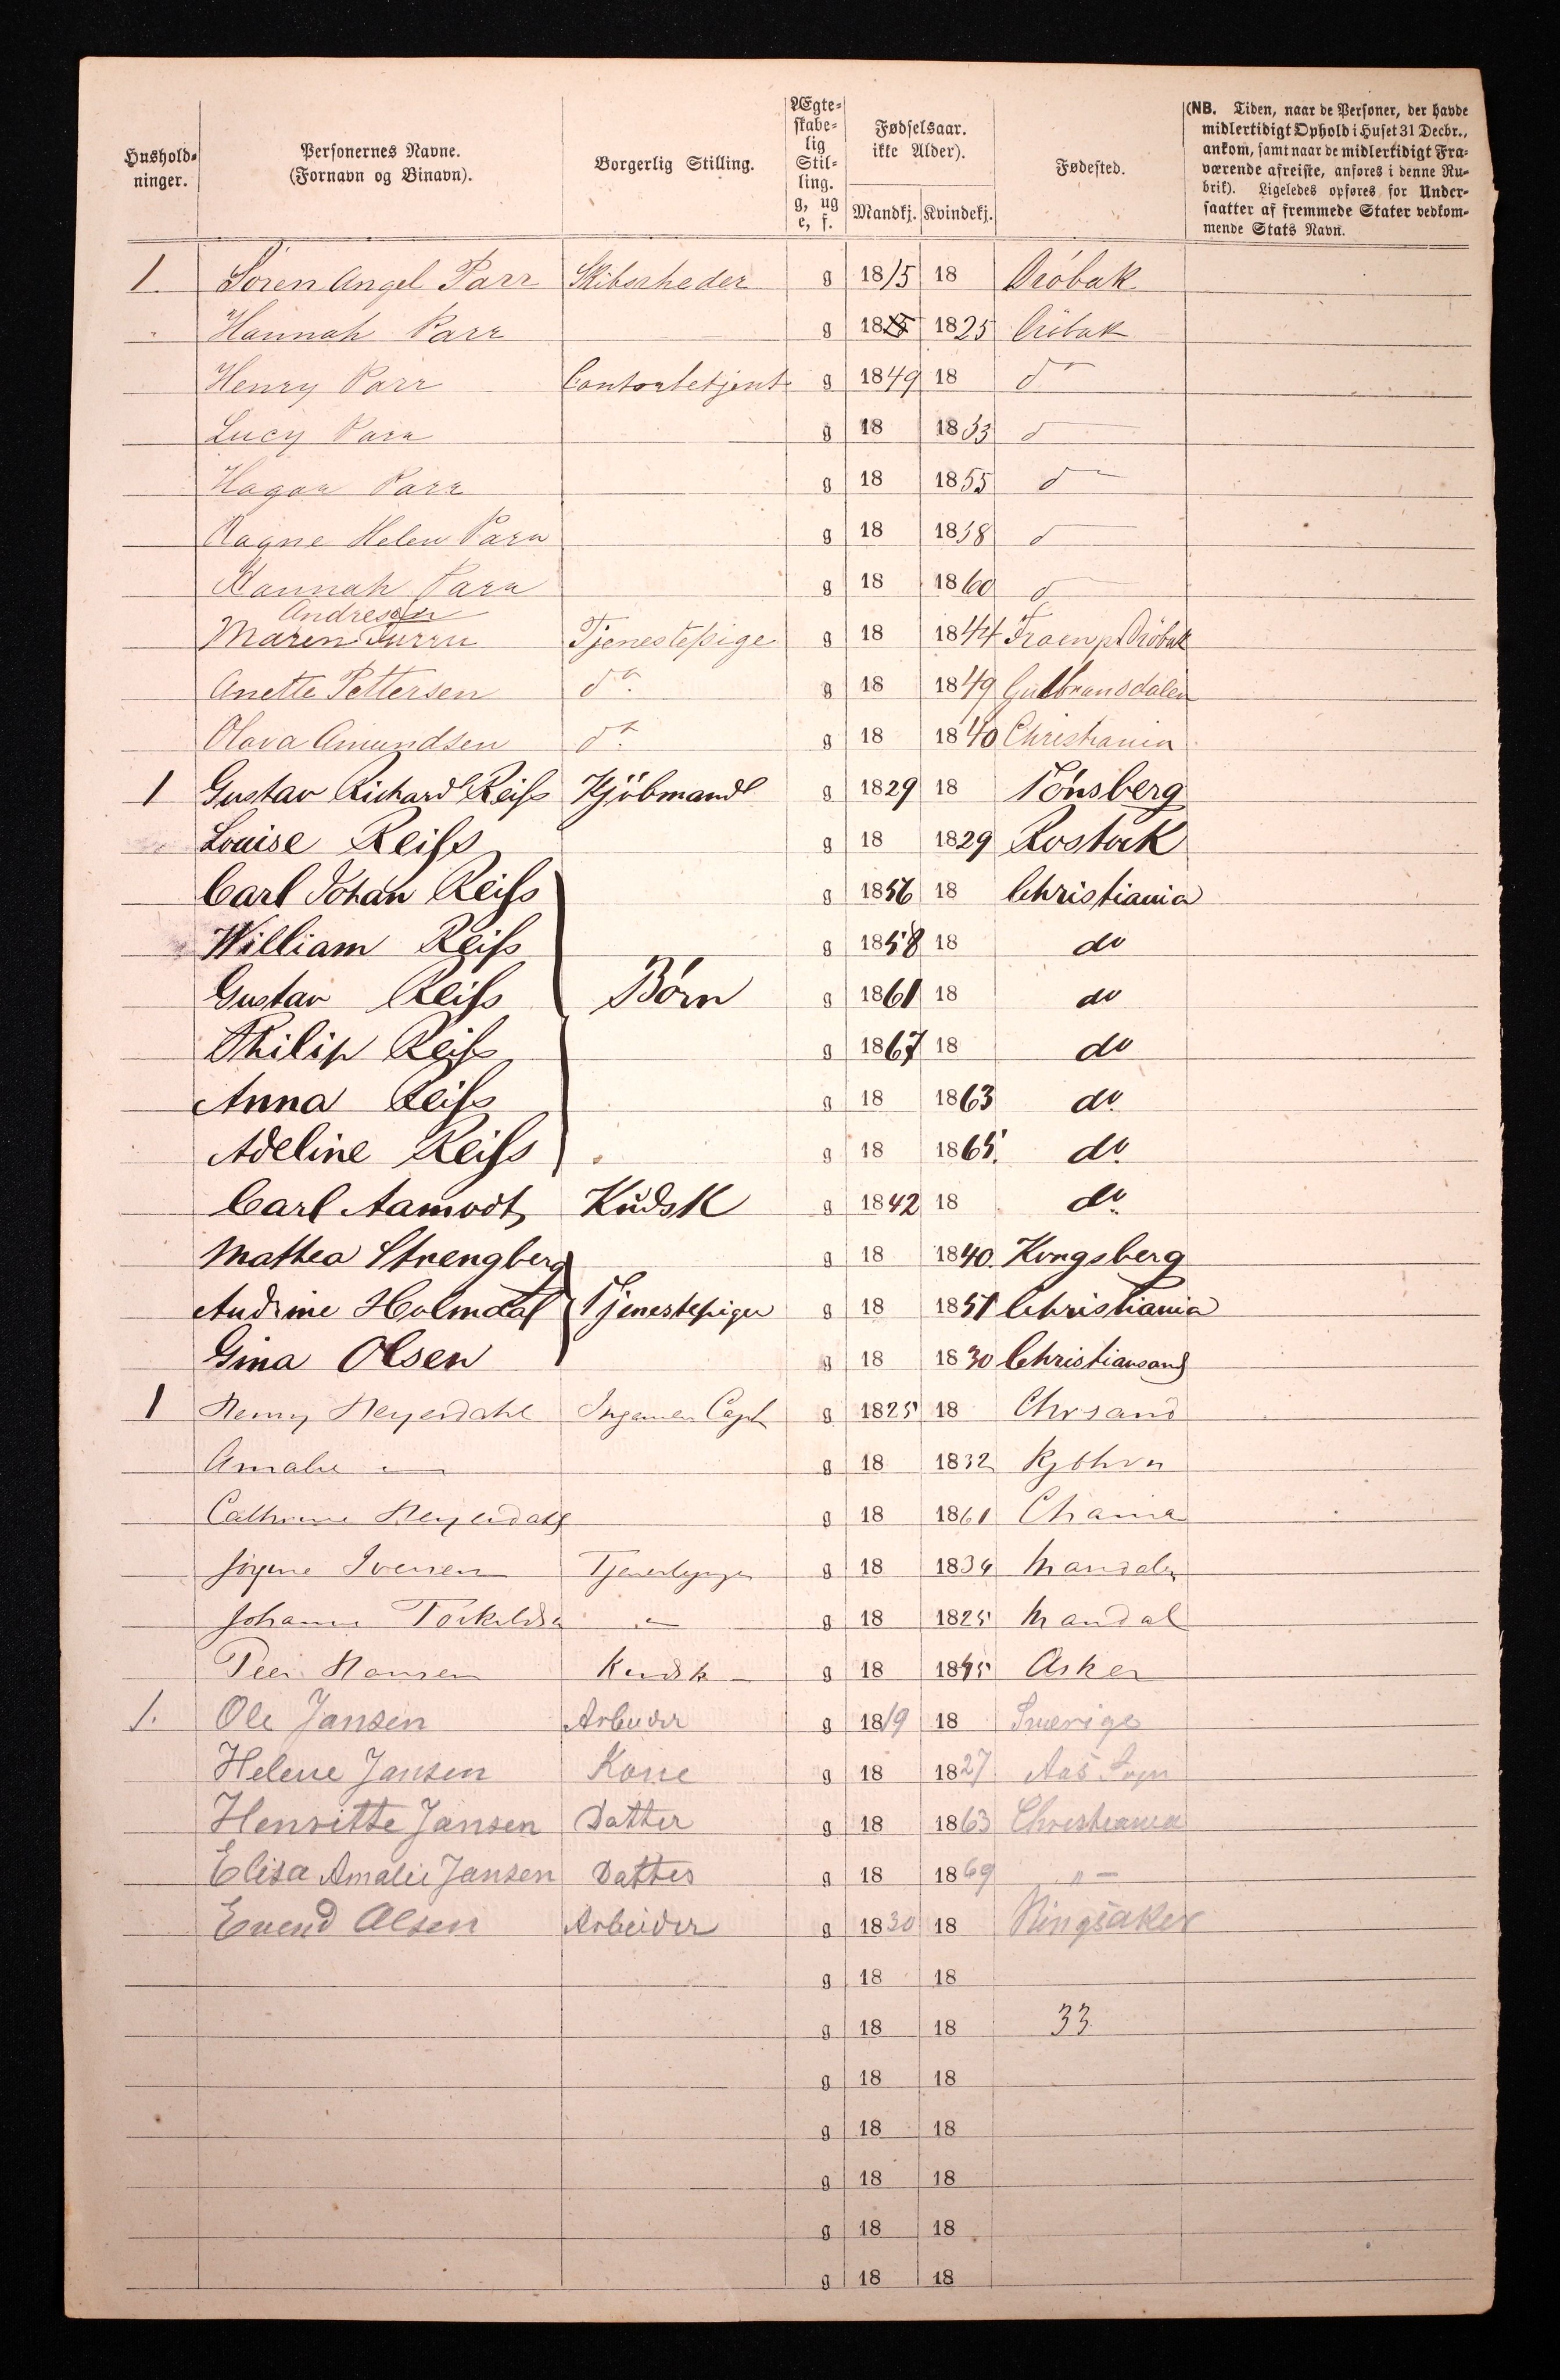 Hushold-
ninger.
Personernes Navne.
(Fornavn og Binavn).
Borgerlig Stilling.
Ægte-
skabe-
lig
Stil-
ling.
g, ug
e, f.
Fødselsaar.
ikke Alder).
Mandkj. Kvindekj.
Fødested.
(NB. Tiden, naar de Personer, der havde
midlertidigt Ophold i Huset 31 Decbr.,
ankom, samt naar de midlertidigt Fra-
værende afreiste, anføres i denne Ru-
brik). Ligeledes opføres for Under-
saatter af fremmede Stater vedkom-
mende Stats Navn.
1. Sören Angel Parr Skibsrheder g 1815 18 Dröbak
" Hannah Parr g 18 1825 Dröbak
Henry Parr Contorbetjent g 1849 18 do
Lucy Parr g 18 1853 do
Hagar Parr g 18 1855 do
Ragne Helen Parr g 18 1858 do
Hannah Parr g 18 1860 do
Andresen
Maren Tjenestepige g 18 1844 Dröbak
Anette Pettersen do. g 18 1849 Gulbrandsdalen
Olava Amundsen do. g 18 1840 Christiania
1 Gustav Richard Reiss Kjöbmand g 1829 18 Tönsberg
Louise Reiss g 18 1829 Rostock
Carl Johan Reiss g 1856 18 Christiania
William Reiss g 1858 18 do
Gustav Reiss Börn g 1861 18 do
Philip Reiss g 1867 18 do
Anna Reiss g 18 1863 do.
Adeline Reiss g 18 1865. do.
Carl Aamodt Kudsk g 1842 18 do.
Mathea Strengberg g 18 1840. Kongsberg
Andrine Holmdal Tjenestepiger g 18 1851 Christiania
Gina Olsen g 18 1830 Christiansand
1 Henny Heyerdahl Ingenieur Capt g 1825 18 Chrsand
Amalie — g 18 1832 Kjbhvn
Cathrine Heyerdahl g 18 1861 Chania
Jörgine Iversen Tjenestepiger g 18 1834 Mandalen
Johanne Torkildsen — g 18 1825 Mandal
Peer Hansen Kudsk g 18 1845 Asker
1. Ole Jansen Arbeider g 1819 18 Sverige
Helene Jansen Kone g 18 1827 Aas Sogn
Henritte Jansen Datter g 18 1863 Christiania
Elisa Amalie Jansen Datter g 18 1869 " —
Evend Olsen Arbeider g 1830 18 Ringsaker
g 18 18
g 18 18 33
g 18 18
g 18 18
g 18 18
g 18 18
g 18 18